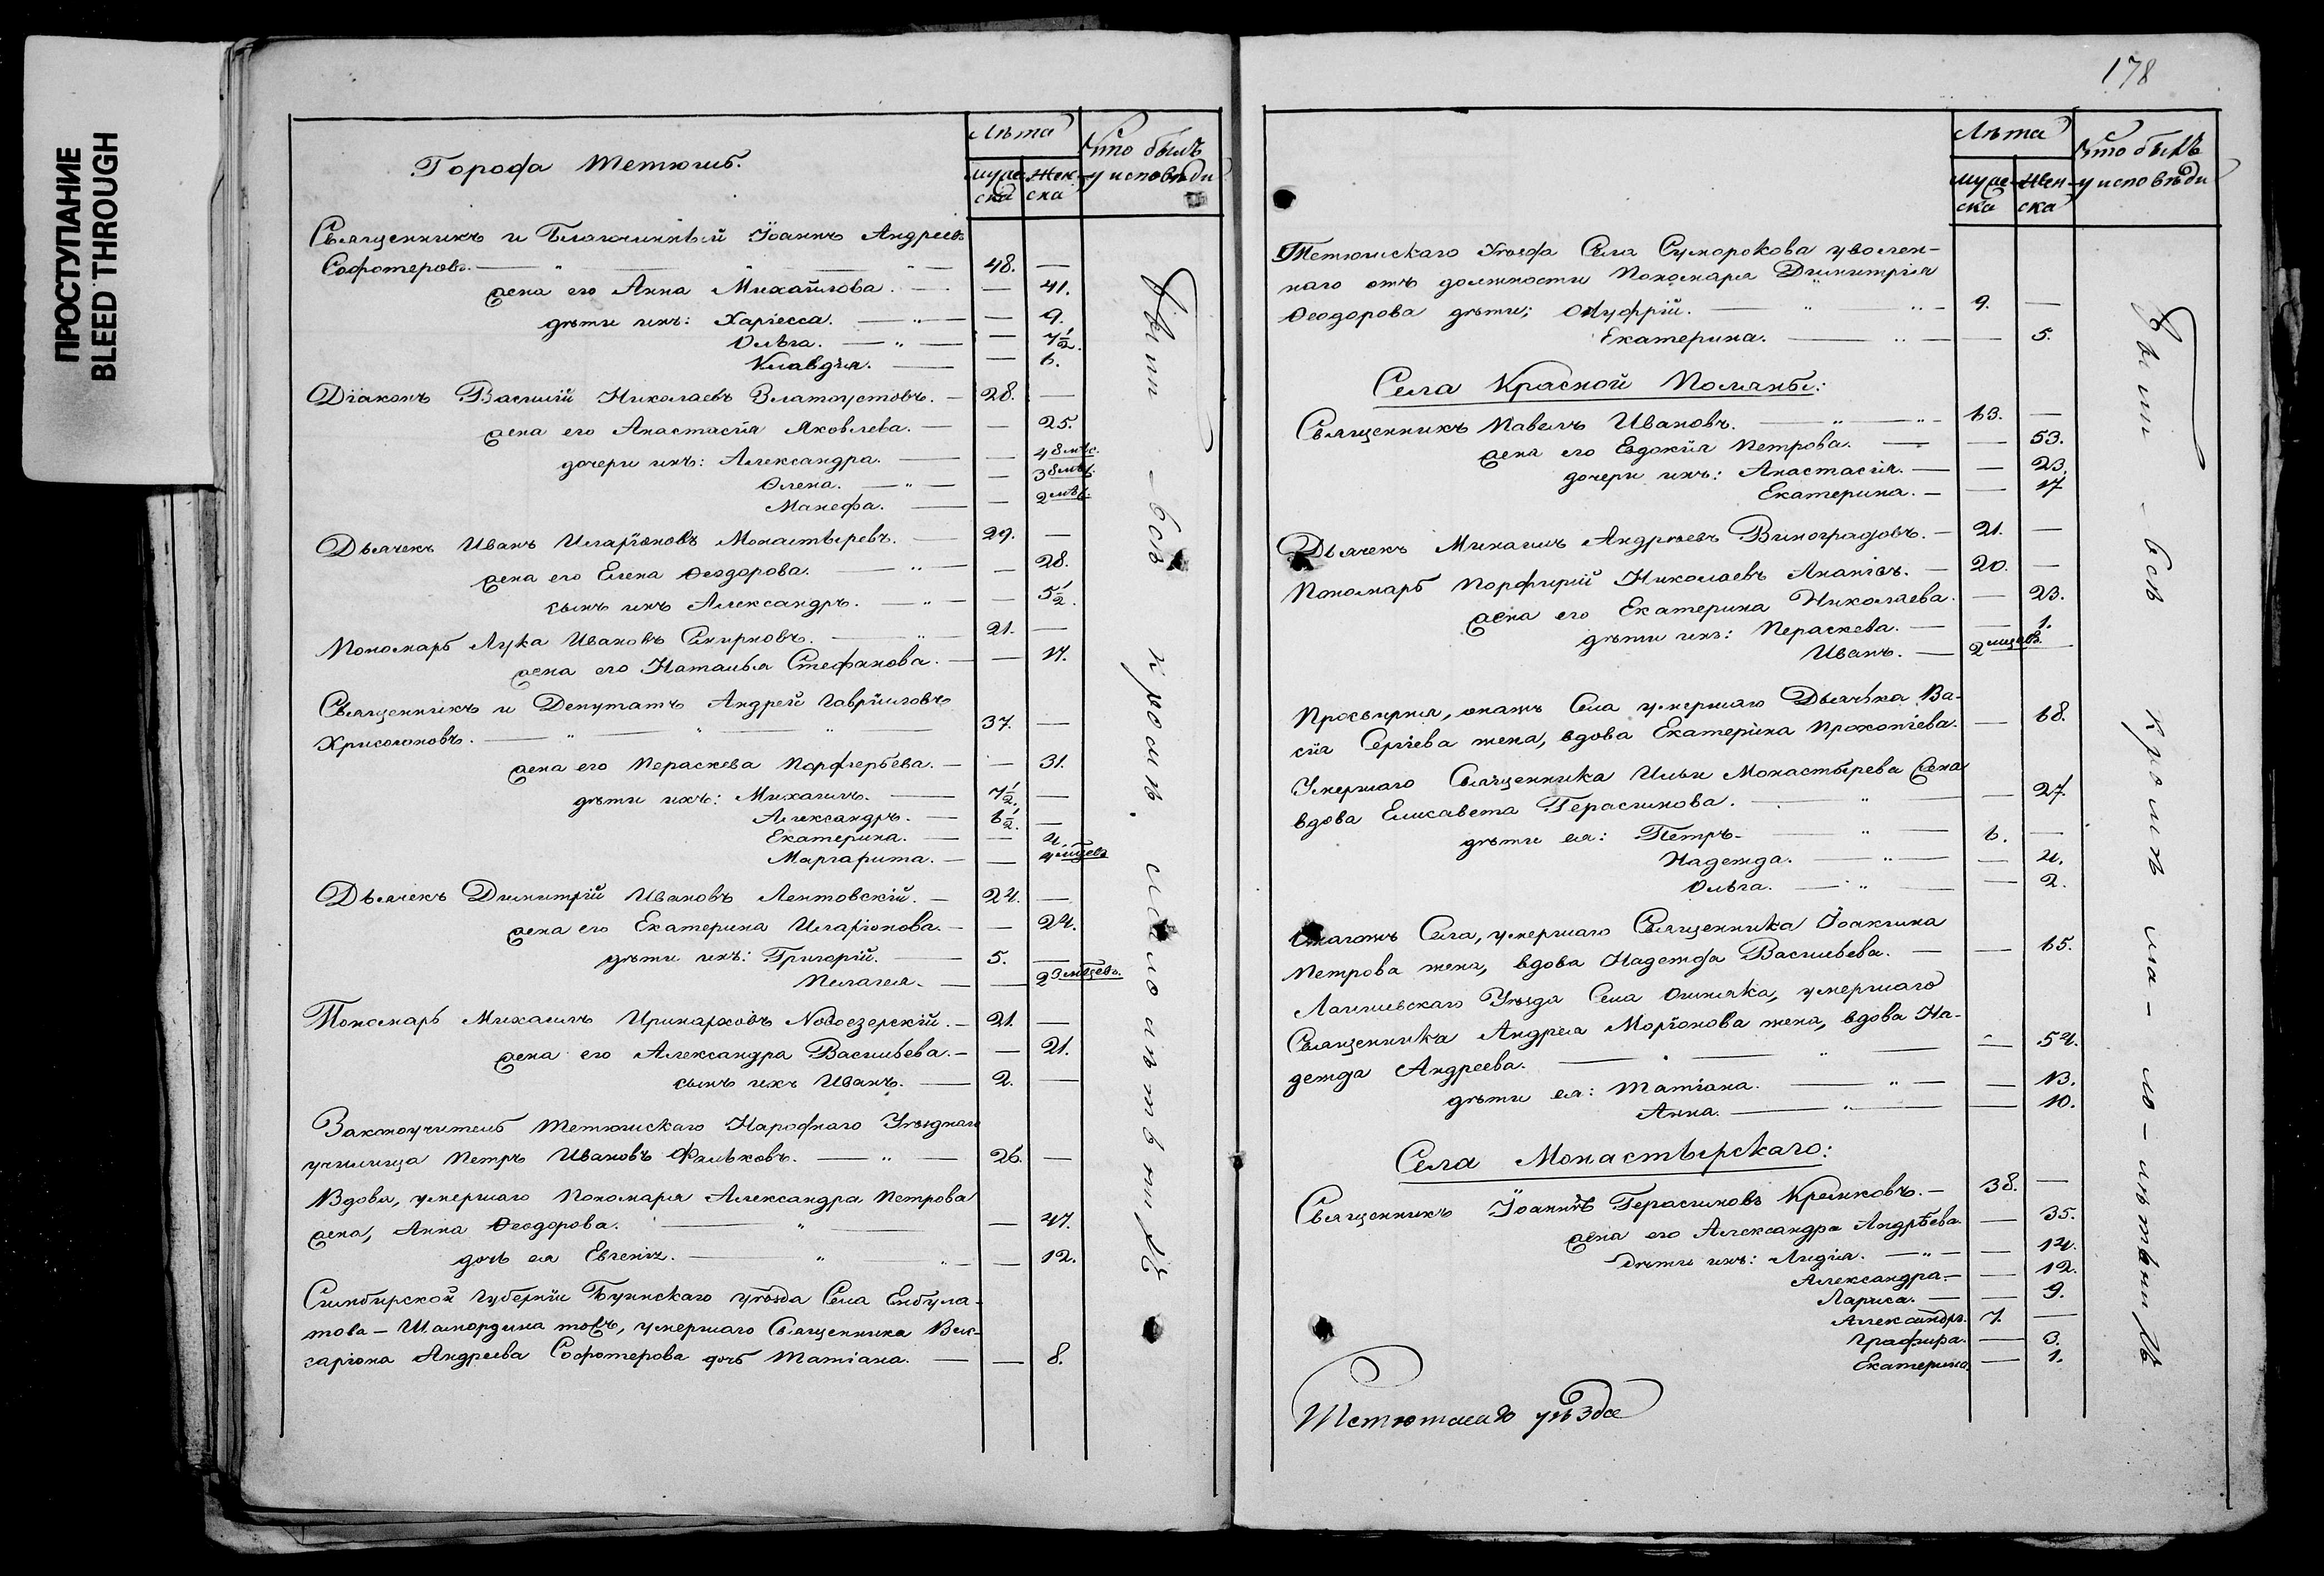 ПРОСТУПАНИЕ
BLEED THROUGH
Города Тетюшъ.
Лѣта
Кто былъ
у исповѣди
муже-
ска
жен-
ска
Священникъ и Благочинный Іоаннъ Андреевъ
Софотеровъ. 48. —
жена его Анна Михайлова. — 41.
дѣти ихъ: Харіесса. — 9.
Ольга. — 7½.
Клавдія. — 6.
Діаконъ Василій Николаевъ Златоустовъ. — 28. —
жена его Анастасія Яковлева. — 25.
дочери ихъ: Александра. — 4 8 мѣс.
Олена. — 3 8 мѣс.
Манефа. — 2 мѣс.
Дьячекъ Иванъ Иларіоновъ Монастыревъ. — 29. —
жена его Елена Ѳеодорова. — 28.
сынъ ихъ Александръ. — 5½.
Пономарь Лука Ивановъ Смирновъ. 21. —
жена его Наталья Стефанова. — 17.
Священникъ и Депутатъ Андрей Гавриловъ
Хрисогоновъ. 37. —
жена его Параскева Порфирьева. — 31.
дѣти ихъ: Михаилъ. — 7½. —
Александръ. — 6½. —
Екатерина. — 4.
Маргарита. — мѣсяцевъ
Дьячекъ Димитрій Ивановъ Лентовскій. — 24. —
жена его Екатерина Иларіонова. — 24.
дѣти ихъ: Григорій. — 5. —
Пелагея. — 2 3 мѣсяцевъ.
Пономарь Михаилъ Иринарховъ Новоезерскій. — 21. —
жена его Александра Васильева. — 21.
сынъ ихъ Иванъ. — 2. —
Законоучитель Тетюшскаго Народнаго Уѣзднаго
училища Петръ Ивановъ Фальковъ. — 26. —
Вдова, умершаго Пономаря Александра Петрова
жена, Анна Ѳеодорова. — 47.
дочь ея Евгенія. — 12.
Симбирской Губерніи Буинскаго уѣзда Села Енбула-
това-Шамордина тожъ, умершаго Священника Вис-
саріона Андреева Софотерова дочь Татіана. — 8.
Были всѣ кромѣ малолѣтнихъ
178
Лѣта
Кто былъ
у исповѣди
муже-
ска
жен-
ска
Тетюшскаго Уѣзда Села Сумарокова уволен-
наго отъ должности Пономаря Димитрія
Ѳеодорова дѣти: Онуфрій. 9. —
Екатерина. — 5.
Села Красной Поляны:
Священникъ Павелъ Ивановъ. 63. —
жена его Евдокія Петрова. — 53.
дочери ихъ: Анастасія. — 23.
Екатерина. — 17
Дьячекъ Михаилъ Андреевъ Виноградовъ. — 21. —
Пономарь Порфирій Николаевъ Ананіевъ. — 20. —
жена его Екатерина Николаева. — 23.
дѣти ихъ: Параскева. — 1.
Иванъ. — 2 мѣсяцевъ.
Просвирня, онагожъ Села умершаго Дьячка Ва-
сія Сергіева жена, вдова Екатерина Прокопіева. — 68.
Умершаго Священника Ильи Монастырева жена
вдова Елисавета Герасимова. — 27.
дѣти ея: Петръ. — 6. —
Надежда. — 4.
Ольга. — 2.
Онагожъ Села, умершаго Священника Іоакима
Петрова жена, вдова Надежда Васильева. — 65.
Лаишевскаго Уѣзда Села Ошняка, умершаго
Священника Андрея Моріонова жена, вдова На-
дежда Андреева. — 54.
дѣти ея: Татіана. — 13.
Анна. — 10.
Села Монастырскаго:
Священникъ Іоаннъ Герасимовъ Кремковъ. — 38. —
жена его Александра Андрѣева. — 35.
Дѣти ихъ: Лидія. — 14.
Александра. — 12.
Лариса. — 9.
Александръ. 7. —
Графира. — 3.
Екатерина. — 1.
Были всѣ кромѣ ма-ло-лѣтнихъ
Тетюшскаго уѣзда